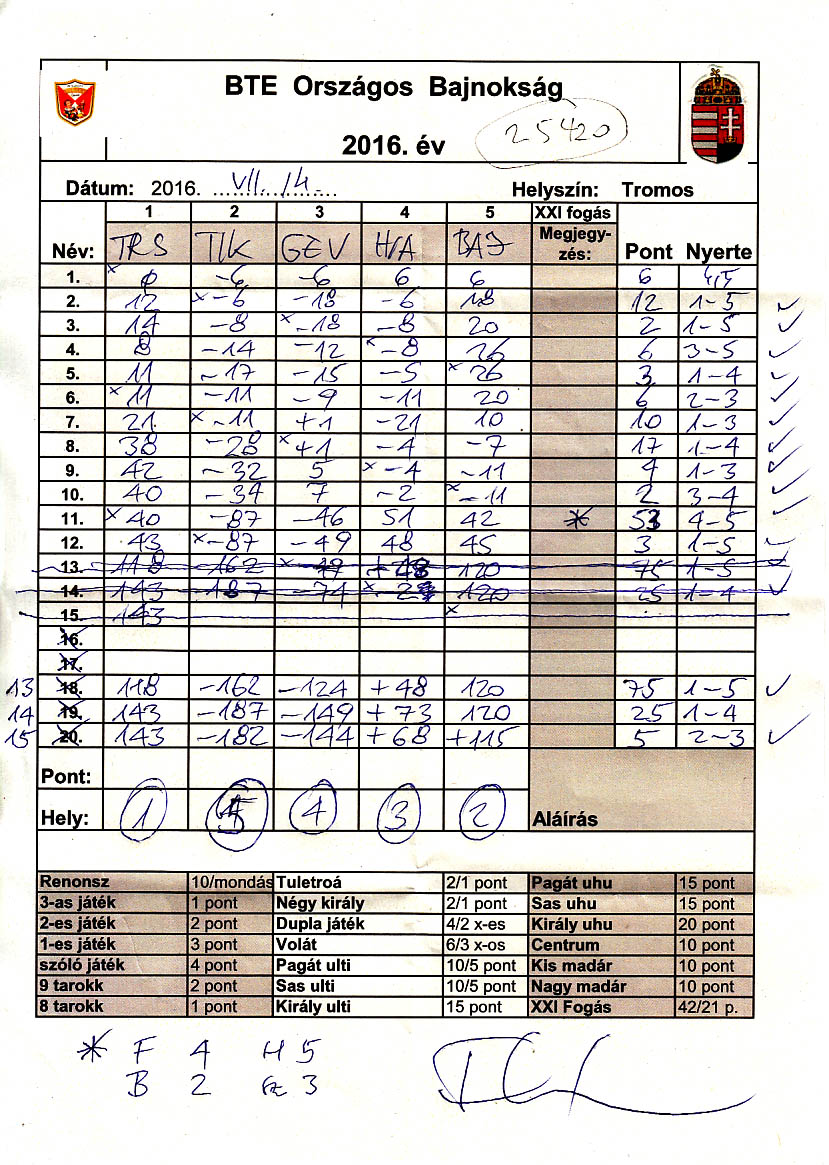 BTE Országos Bajnokság
2016. év 25420
Dátum: 2016. VII. 14. Helyszín: Tromos
1 2 3 4 5 XXI fogás
Név: TRS TLK GEV HA BAJ Megjegy-zés: Pont Nyerte
1. x 0 -6 -6 6 6 6 4,5
2. 12 x-6 -18 -6 18 12 1-5
3. 14 -8 x-18 -8 20 2 1-5
4. 8 -14 -12 x-8 26 6 3-5
5. 11 -17 -15 -5 x26 3 1-4
6. x11 -11 -9 -11 20 6 2-3
7. 21 x-11 +1 -21 10 10 1-3
8. 38 -28 x+1 -4 -7 17 1-4
9. 42 -32 5 x-4 -11 4 1-3
10. 40 -34 7 -2 x-11 2 3-4
11. x40 -87 -46 51 42 * 53 4-5
12. 43 x-87 -49 48 45 3 1-5
13. 118 162 x 49 +48 120 75 1-5
14. 143 187 -74 x 120 25 1-4
15. 143 x
16.
17.
13 18. 118 -162 -124 +48 120 75 1-5
14 19. 143 -187 -149 +73 120 25 1-4
15 20. 143 -182 -144 +68 +115 5 2-3
Pont:
Hely: 1 5 4 3 2 Aláírás
Renonsz 10/mondás Tuletroá 2/1 pont Pagát uhu 15 pont
3-as játék 1 pont Négy király 2/1 pont Sas uhu 15 pont
2-es játék 2 pont Dupla játék 4/2 x-es Király uhu 20 pont
1-es játék 3 pont Volát 6/3 x-os Centrum 10 pont
szóló játék 4 pont Pagát ulti 10/5 pont Kis madár 10 pont
9 tarokk 2 pont Sas ulti 10/5 pont Nagy madár 10 pont
8 tarokk 1 pont Király ulti 15 pont XXI Fogás 42/21 p.
* F 4 H 5
B 2 Gz 3